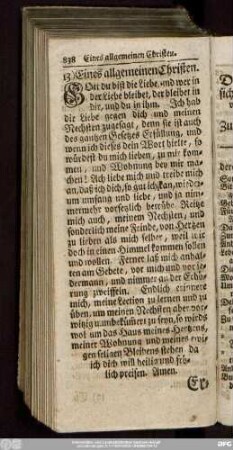 838 Eines allgemeinen Christen.
13) Eines allgemeinen Christen.
GOtt du bist die Liebe, und wer in
der Liebe bleibet, der bleibet in
dir, und du in ihm. Ich hab
die Liebe gegen dich und meinen
Nechsten zugesagt, denn sie ist auch
des gantzen Gesetzes Erfüllung, und
wenn ich dieses dein Wort hielte, so
würdest du mich lieben, zu mir kom-
men, und Wohnung bey mir ma-
chen! Ach liebe mich und treibe mich
an, daß ich dich, so gut ich kan, wieder-
um umfang und liebe, und ja nim-
mermehr vorsetzlich betrübe. Reitze
mich auch, meinem Nechsten, und
sonderlich meine Feinde, von Hertzen
zu lieben als mich selber, weil wir
doch in einen Himmel kommen sollen
und wollen. Ferner laß mich anhal-
ten am Gebete, vor mich und vor je-
dermann, und nimmer an der Erhö-
rung zweiffeln. Endlich erinnere
mich, meine Lection zu lernen und zu
üben, um meinen Nechsten aber
unbekümmert zu seyn, so wirds
wol um das Haus meines Hertzens,
meiner Wohnung und meines ewi-
gen seligen Bleibens stehen da
ich dich will heilig und frö-
lich preisen. Amen.